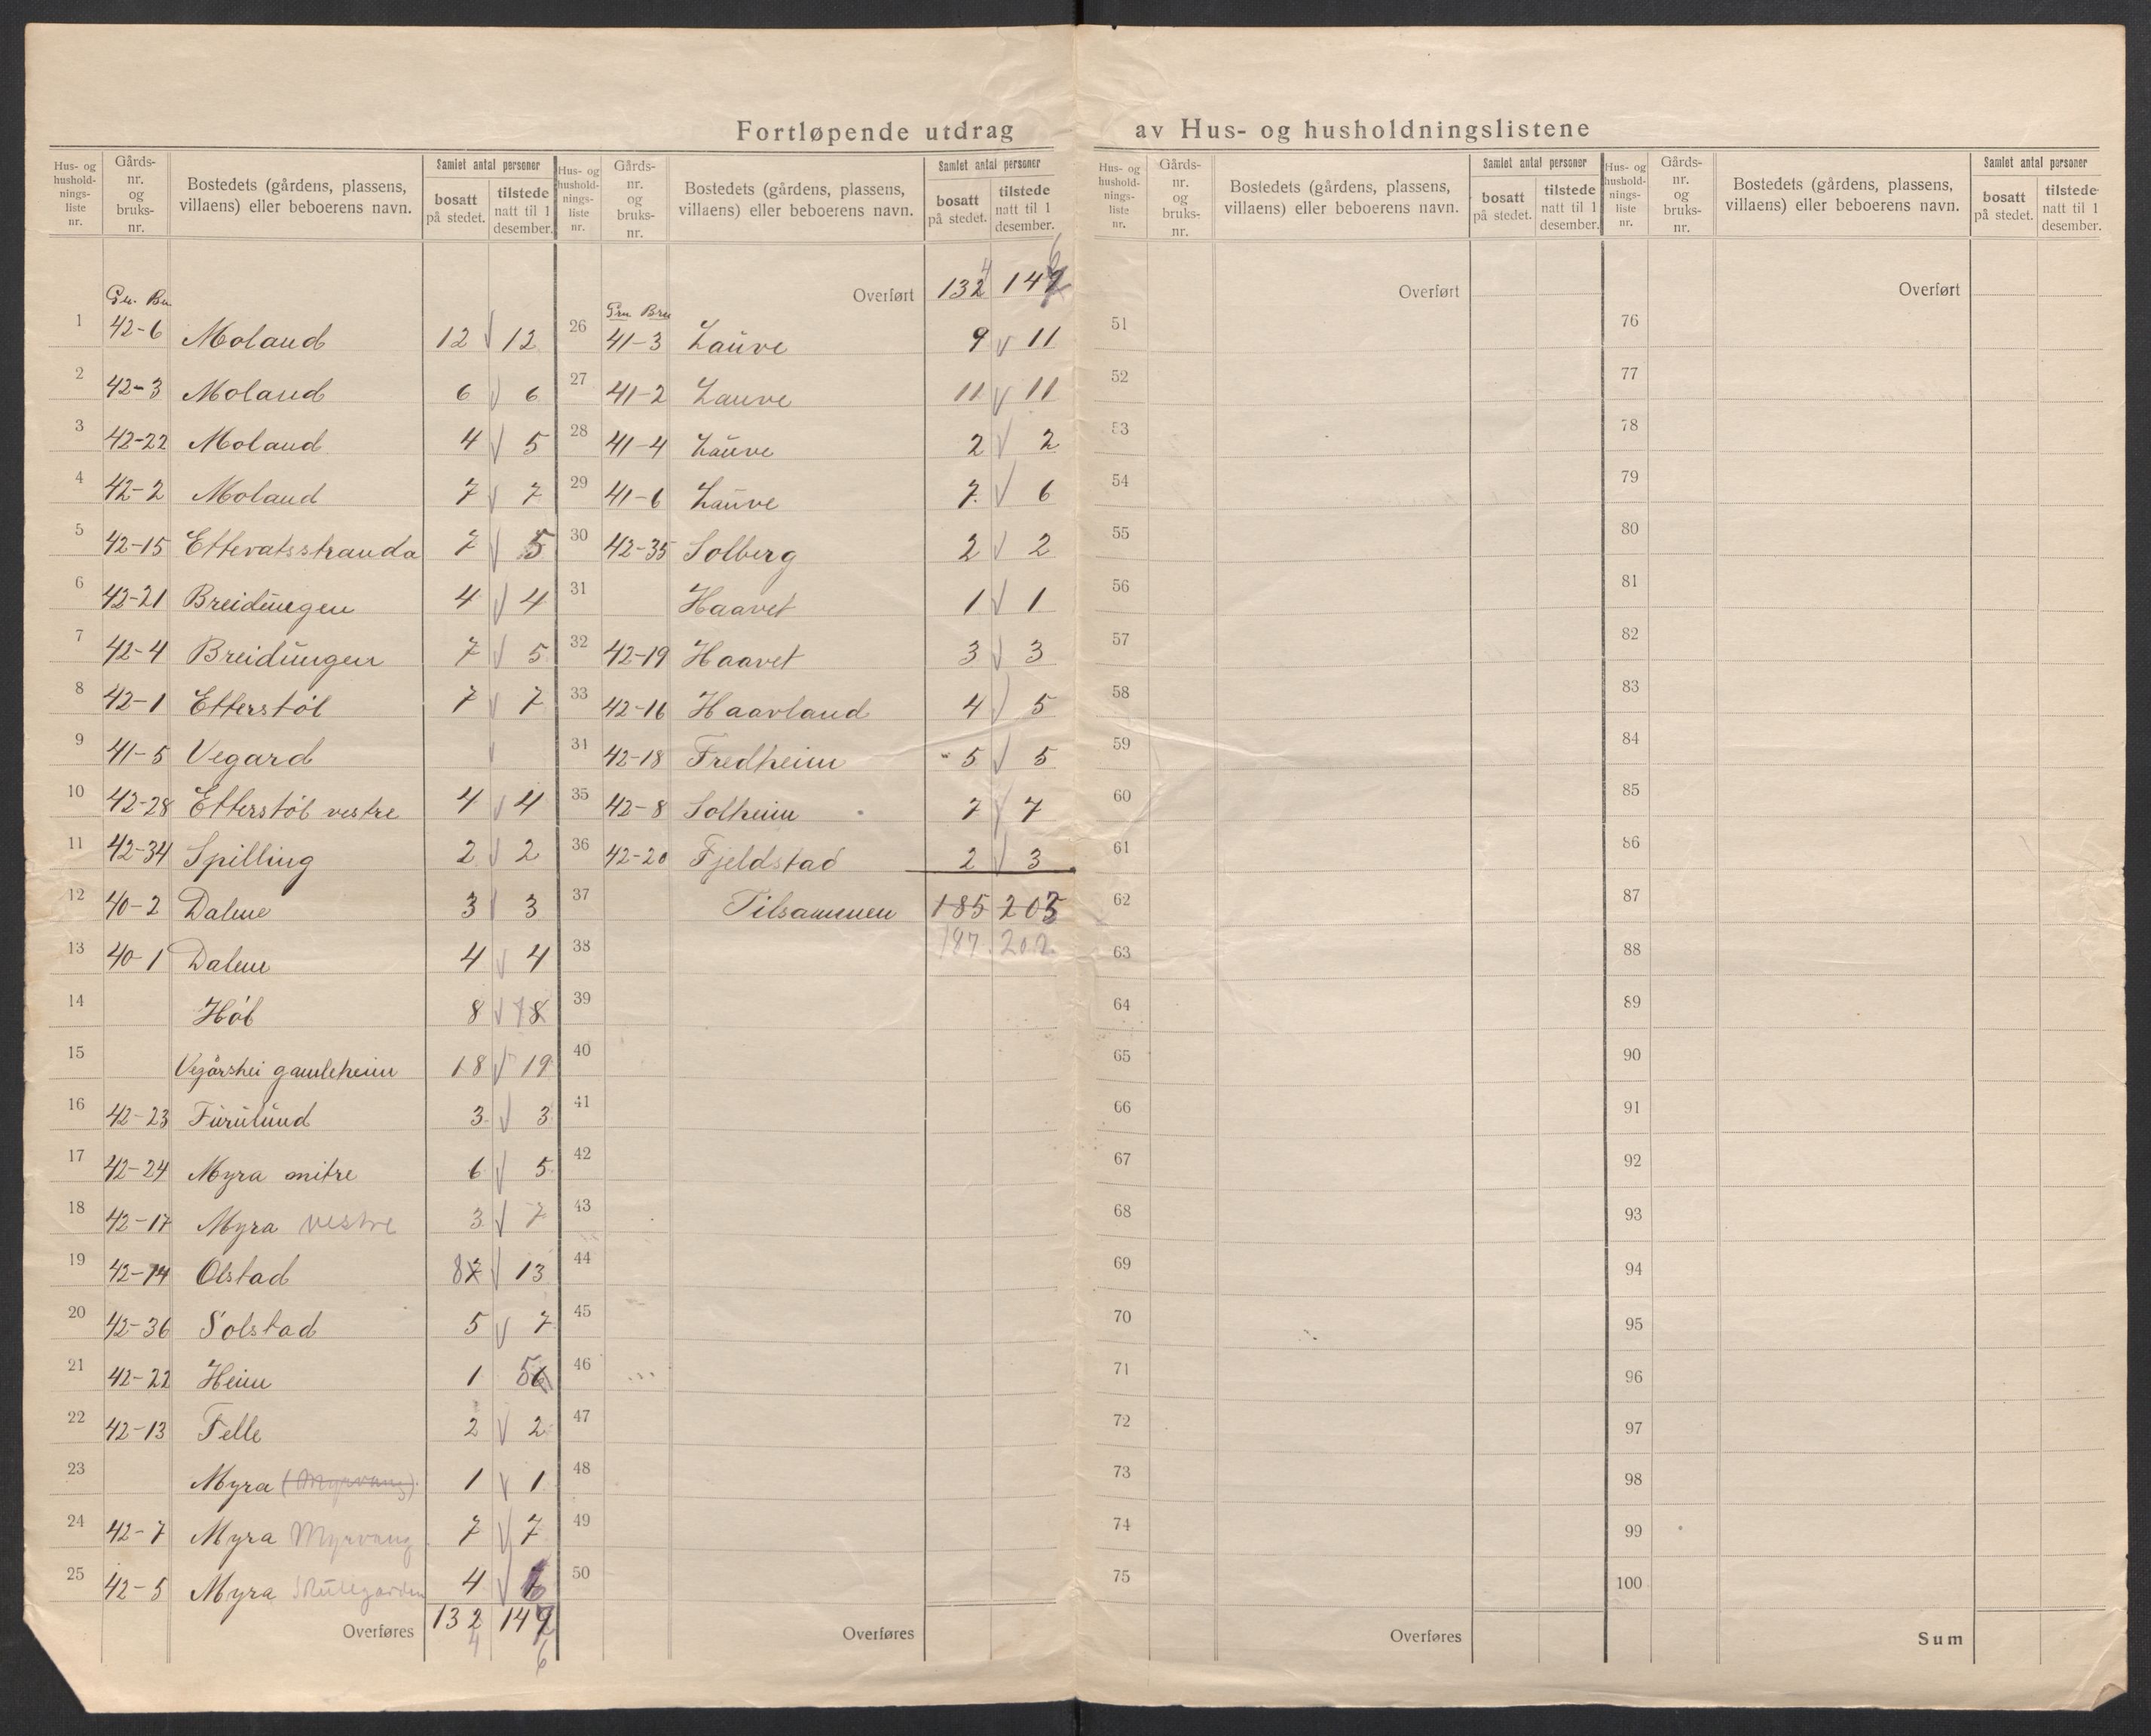 Fortløpende utdrag av Hus- og husholdningslistene
Hus- og hushold-nings-liste nr. Gårds-nr. og bruks-nr. Bostedets (gårdens, plassens, villaens) eller beboerens navn. Samlet antal personer bosatt på stedet. tilstede natt til 1 desember.
Gn. Bn.
1 42-6 Moland 12 12
2 42-3 Moland 6 6
3 42-22 Moland 4 5
4 42-2 Moland 7 7
5 42-15 Ettevatsstranda 7 5
6 42-21 Breidungen 4 4
7 42-4 Breidungen 7 5
8 42-1 Etterstøl 7 7
9 41-5 Vegard
10 42-28 Etterstøl vestre 4 4
11 42-34 Spilling 2 2
12 40-2 Dalene 3 3
13 40-1 Dalene 4 4
14 Høl 8 7 8
15 Vegårshei gamleheim 18 19
16 42-23 Furulund 3 3
17 42-24 Myra mitre 6 5
18 42-17 Myra vestre 3 7
19 42-14 Olstad 8 7 13
20 42-36 Solstad 5 7
21 42-22 Heim 1 5 6
22 42-13 Felle 2 2
23 Myra (Myrvang) 1 1
24 42-7 Myra Myrvang 7 7
25 42-5 Myra Skulegarden 4
Overføres 132 149
4 6
Hus- og hushold-nings-liste nr. Gårds-nr. og bruks-nr. Bostedets (gårdens, plassens, villaens) eller beboerens navn. Samlet antal personer bosatt på stedet. tilstede natt til 1 desember.
4 6
Overført 132 149
Grn Brn
26 41-3 Lauve 9 11
27 41-2 Lauve 11 11
28 41-4 Lauve 2 2
29 41-6 Lauve 7 6
30 42-35 Solberg 2 2
31 Haavet 1 1
32 42-19 Haavet 3 3
33 42-16 Haavland 4 5
31 42-18 Fredheim 5 5
35 42-8 Solheim 7 7
36 42-20 Fjeldstad 2 3
37 Tilsammen 185 203
38 187. 202.
39
40
41
42
43
44
45
46
47
48
49
50
Overføres
Hus- og hushold-nings-liste nr. Gårds-nr. og bruks-nr. Bostedets (gårdens, plassens, villaens) eller beboerens navn. Samlet antal personer bosatt på stedet. tilstede natt til 1 desember.
Overført
51
52
53
54
55
56
57
58
59
60
61
62
63
64
65
66
67
68
69
70
71
72
73
74
75
Overføres
Hus- og hushold-nings-liste nr. Gårds-nr. og bruks-nr. Bostedets (gårdens, plassens, villaens) eller beboerens navn. Samlet antal personer bosatt på stedet. tilstede natt til 1 desember.
Overført
76
77
78
79
80
81
82
83
84
85
86
87
88
89
90
91
92
93
94
95
96
97
98
99
100
Sum